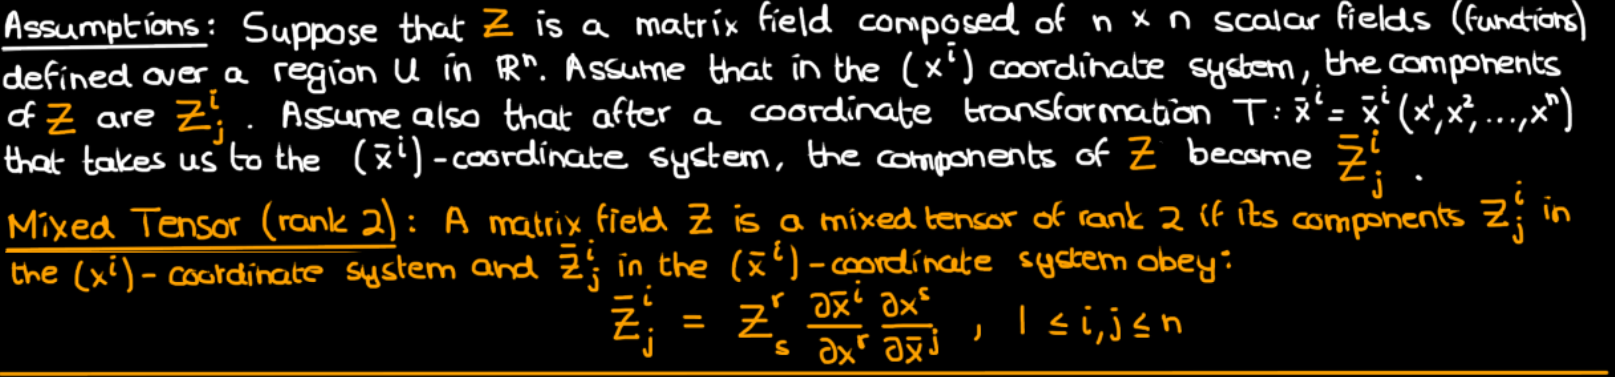 Assumptions: Suppose that Z is a matrix field composed of n × n scalar fields (functions)
defined over a region U in ℝⁿ. Assume that in the (xⁱ) coordinate system, the components
of Z are Zⁱⱼ . Assume also that after a coordinate transformation T: x̄ⁱ = x̄ⁱ(x¹,x²,...,xⁿ)
that takes us to the (x̄ⁱ)-coordinate system, the components of Z become Z̄ⁱⱼ .
Mixed Tensor (rank 2): A matrix field Z is a mixed tensor of rank 2 if its components Zⁱⱼ in
the (xⁱ)-coordinate system and Z̄ⁱⱼ in the (x̄ⁱ)-coordinate system obey:
Z̄ⁱⱼ = Zʳₛ ∂x̄ⁱ/∂xʳ ∂xˢ/∂x̄ʲ , 1 ≤ i,j ≤ n